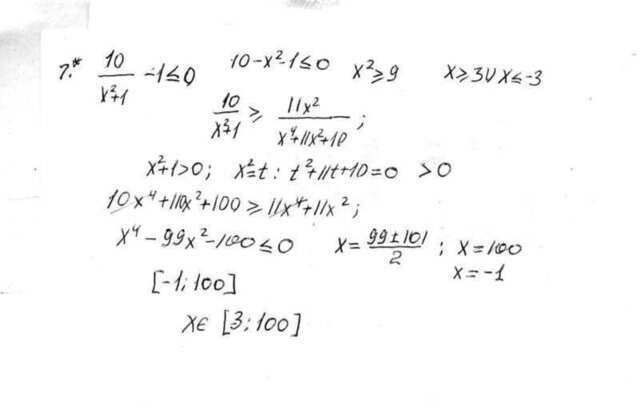 7.* 10/(x²+1) -1≤0 10-x²-1≤0 x²≥9 x≥3∪x≤-3
10/(x²+1) ≥ 11x²/(x⁴+11x²+10);
x²+1>0; x²=t: t²+11t+10=0 >0
10x⁴+110x²+100≥11x⁴+11x²;
x⁴-99x²-100≤0 x=(99±101)/2; x=100
x=-1
[-1;100]
x∈ [3;100]